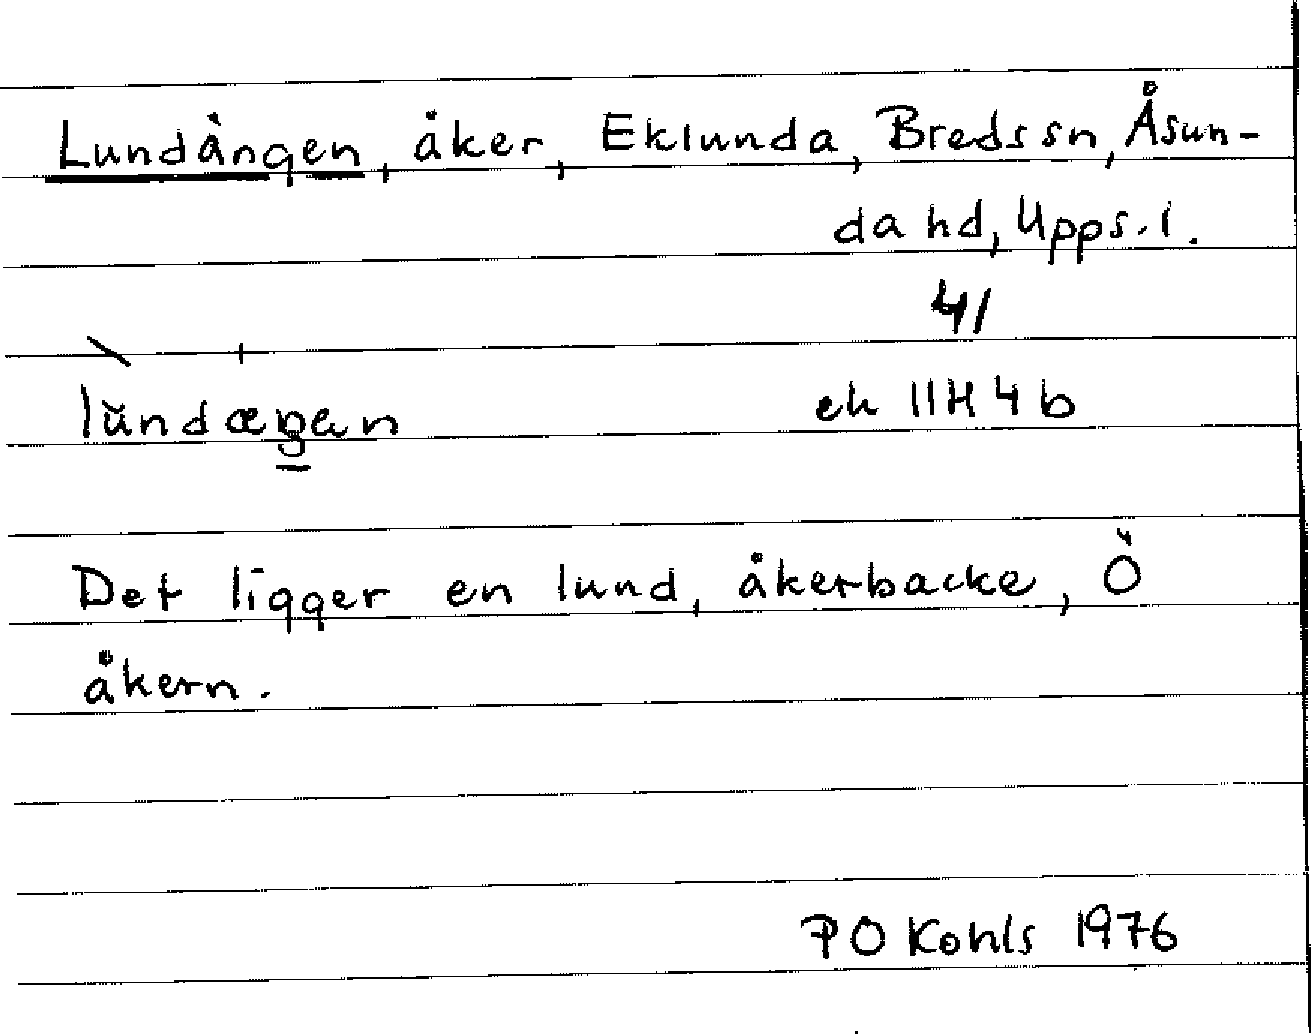 Lundängen, åker, Eklunda, Bredssn, Åsun-
da hd, Upps. l.
41
lŭndæŋɐn
ek 11H 4b
Det ligger en lund, åkerbacke, Ö
åkern.
PO Kohls 1976